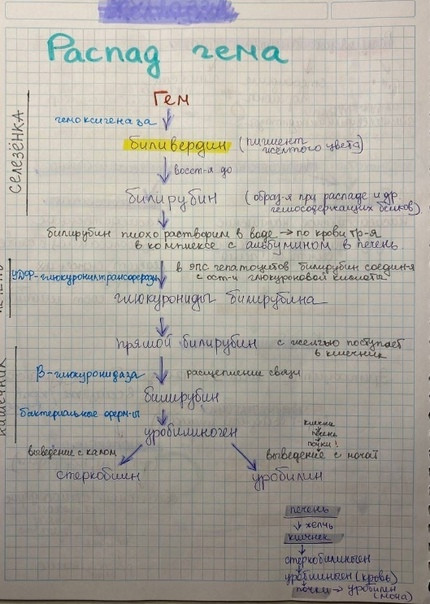 Распад гема
Гем
гемоксигеназа
биливердин (пигмент
желтого цвета)
восст-я до
СЕЛЕЗЁНКА
билирубин (образ-я при распаде и др
гемосодержащих белков)
билирубин плохо растворим в воде → по крови тр-я
в комплексе с альбумином в печень
в ЭПС гепатоцитов билирубин соедин-я
с ост-и глюкуроновой кислоты
УДФ-глюкуронилтрансфераза
глюкурониды билирубина
прямой билирубин с желчью поступает
в кишечник
β-глюкуронидаза расщепление связи
билирубин
бактериальные ферм-ы
КИШЕЧНИК
уробилиноген
кишечн
печень
почки!
выведение с калом выведение с мочой
стеркобилин уробилин
печень
↓ желчь
кишечник
стеркобилиноген
уробилиноген (кровь)
почки → уробилин
(моча)